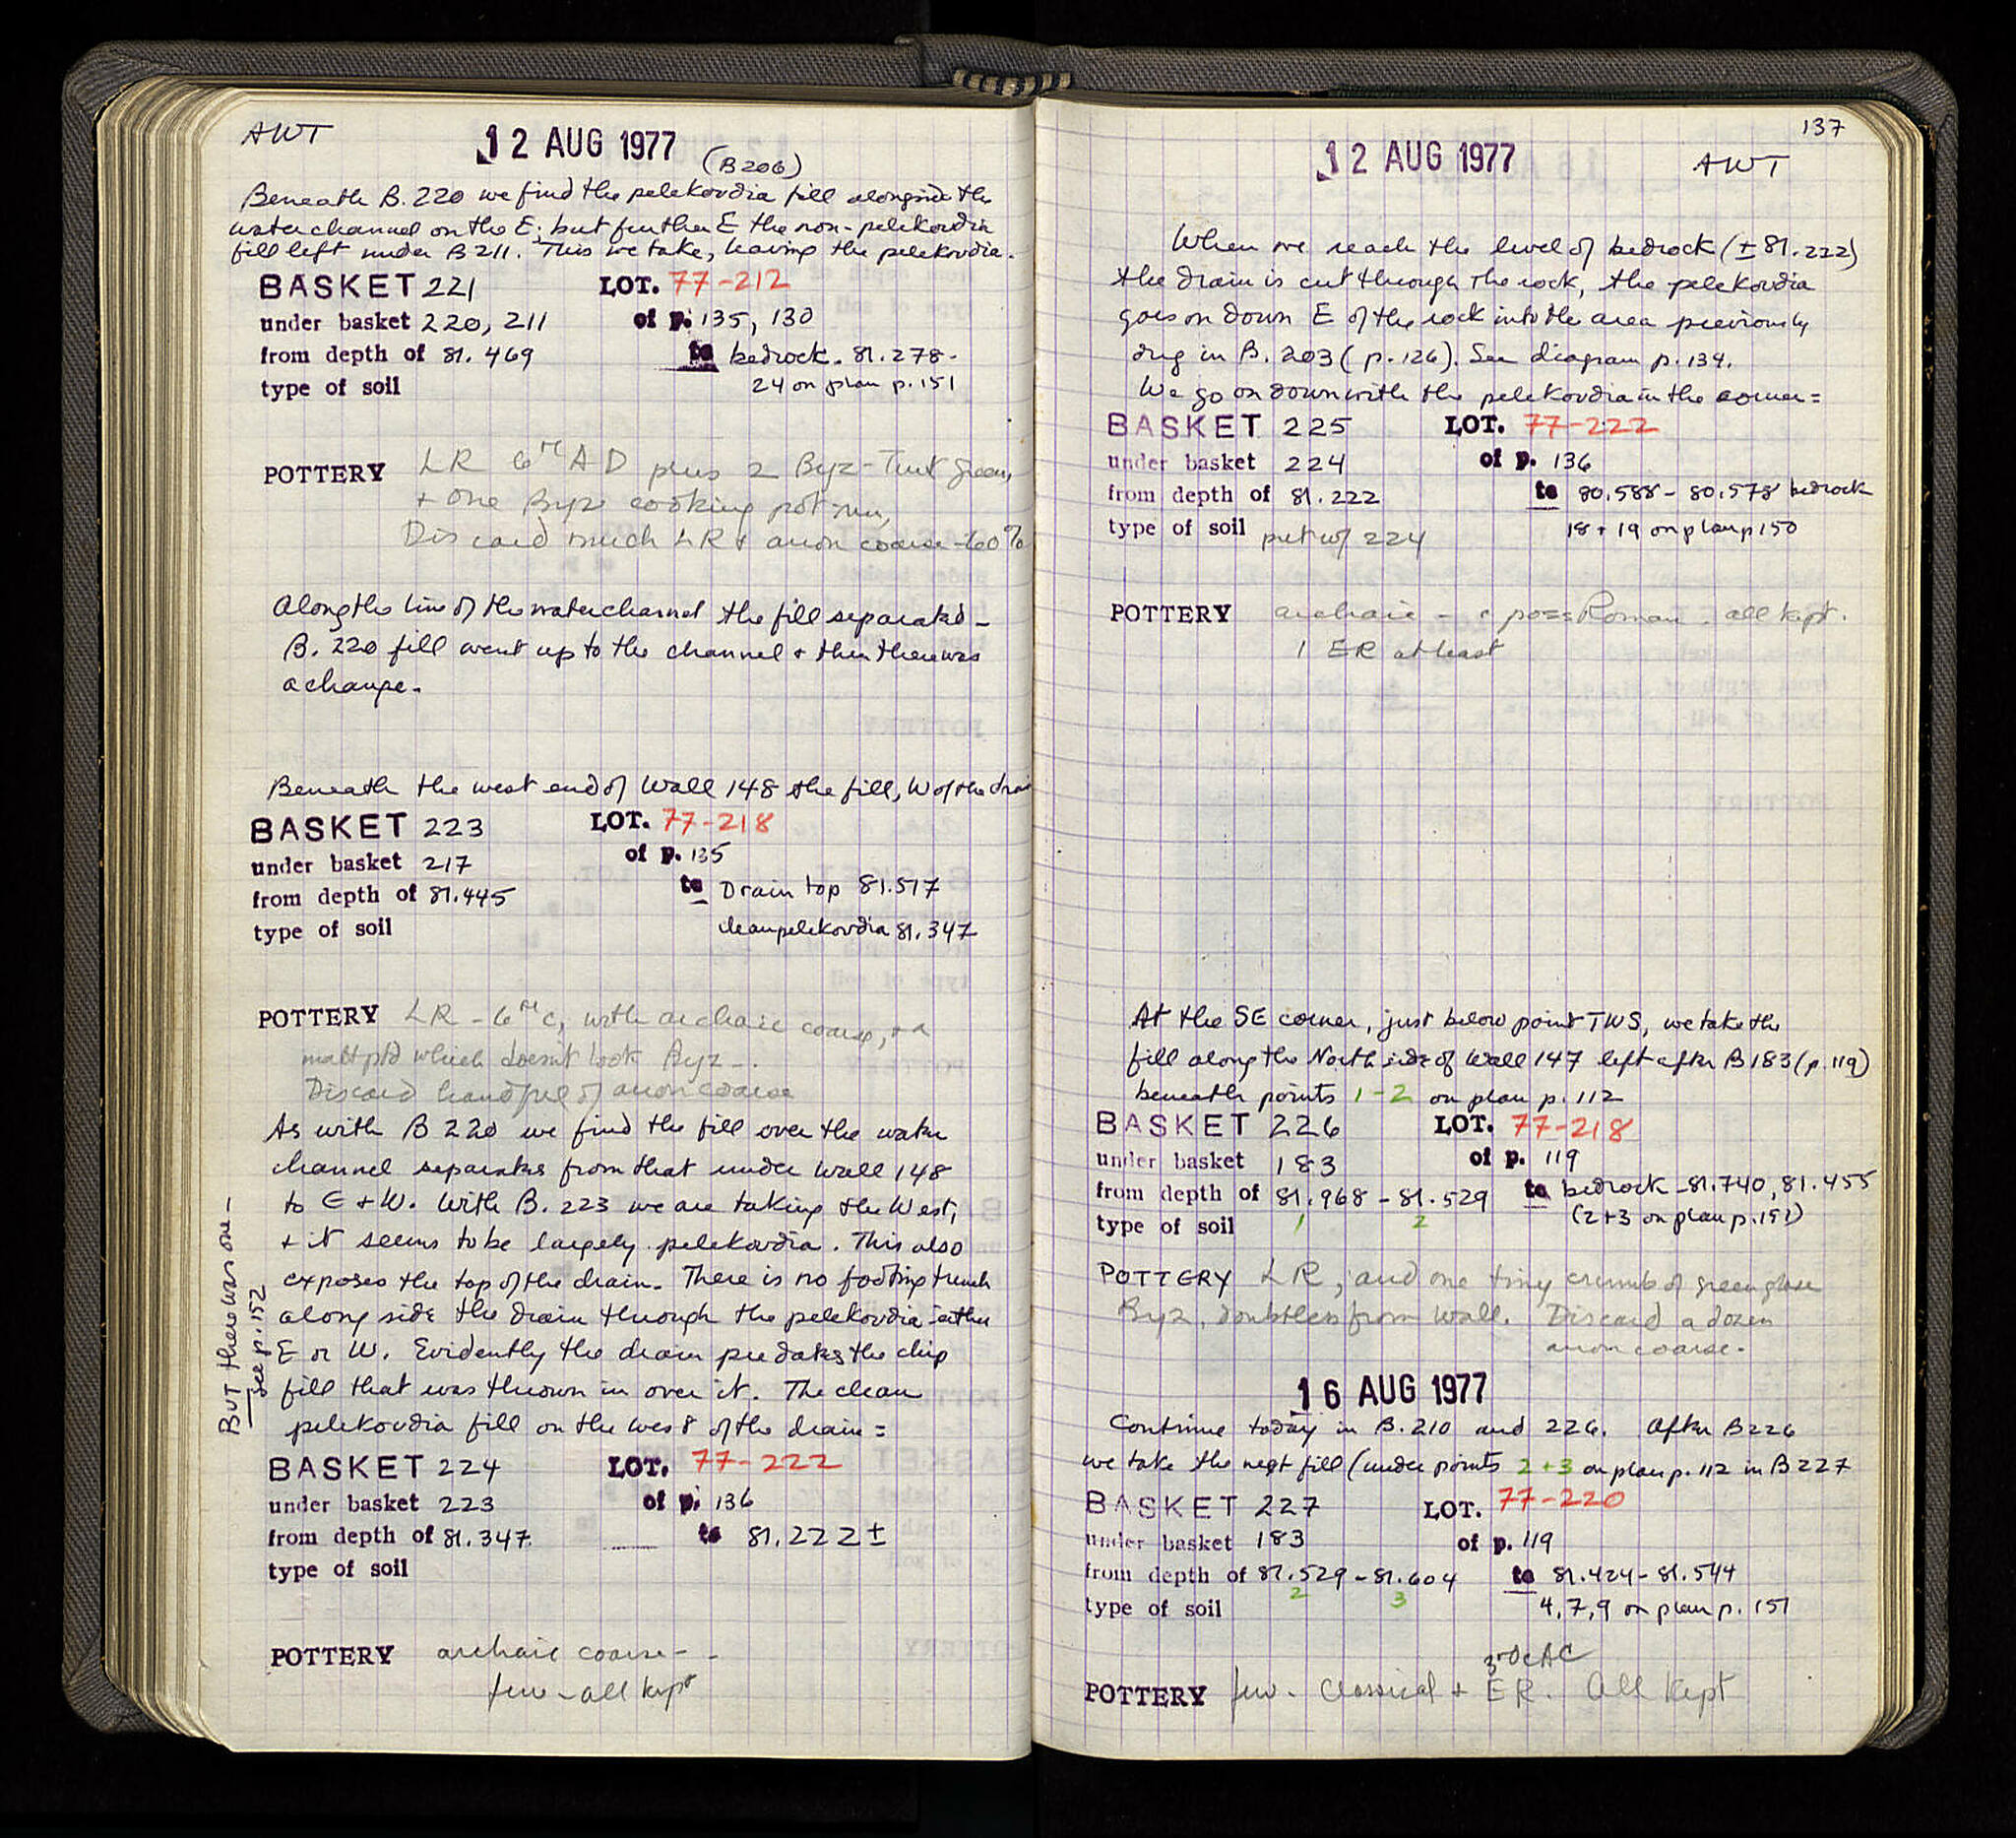 AWT
12 AUG 1977
(B206)
Beneath B. 220 we find the pelekovdia fill alongside the
water channel on the E; but further E the non-pelekovdia
fill left under B 211. This we take, leaving the pelekovdia.
BASKET 221 LOT. 77-212
under basket 220, 211 of p. 135, 130
from depth of 81.469 to bedrock - 81.278 -
type of soil 24 on plan p. 151
POTTERY LR 6th AD plus 2 Byz-Turk green,
+ one Byz cooking pot rim,
Discard much LR + anon coarse - 60%
Along the line of the water channel the fill separated -
B. 220 fill went up to the channel + then there was
a change.
Beneath the west end of Wall 148 the fill, W of the drain
BASKET 223 LOT. 77-218
under basket 217 of p. 135
from depth of 81.445 to Drain top 81.517
type of soil clean pelekovdia 81.347
POTTERY LR - 6th c, with archaic coarse, + a
matt ptd which doesn't look Byz -.
Discard handful of anon coarse
As with B 220 we find the fill over the water
channel separates from that under Wall 148
to E + W. With B. 223 we are taking the West,
+ it seems to be largely pelekovdia. This also
exposes the top of the drain. There is no footing trench
along side the drain through the pelekovdia either
E or W. Evidently the drain predates the chip
fill that was thrown in over it. The clean
pelekovdia fill on the west of the drain =
BUT there was one -
see p. 152
BASKET 224 LOT. 77-222
under basket 223 of p. 136
from depth of 81.347 to 81.222 ±
type of soil
POTTERY archaic coarse -
few - all kept
137
12 AUG 1977 AWT
When we reach the level of bedrock (± 81.222)
the drain is cut through the rock, the pelekovdia
goes on down E of the rock into the area previously
dug in B. 203 (p. 126). See diagram p. 134.
We go on down with the pelekovdia in the corner =
BASKET 225 LOT. 77-222
under basket 224 of p. 136
from depth of 81.222 to 80.588 - 80.578 bedrock
type of soil put w/ 224 18 + 19 on plan p 150
POTTERY archaic - poss Roman. all kept.
1 ER at least
At the SE corner, just below point TWS, we take the
fill along the North side of Wall 147 left after B 183 (p. 119)
beneath points 1-2 on plan p. 112
BASKET 226 LOT. 77-218
under basket 183 of p. 119
from depth of 81.968 - 81.529 to bedrock - 81.740, 81.455
type of soil 1 2 (2+3 on plan p. 151)
POTTERY LR, and one tiny crumb of green glaze
Byz, doubtless from wall. Discard a dozen
anon coarse.
16 AUG 1977
Continue today in B. 210 and 226. After B 226
we take the next fill (under points 2+3 on plan p. 112 in B 227
BASKET 227 LOT. 77-220
under basket 183 of p. 119
from depth of 81.529 - 81.604 to 81.424 - 81.544
type of soil 2 3 4, 7, 9 on plan p. 151
3rd c AC
POTTERY few - Classical + ER. All kept